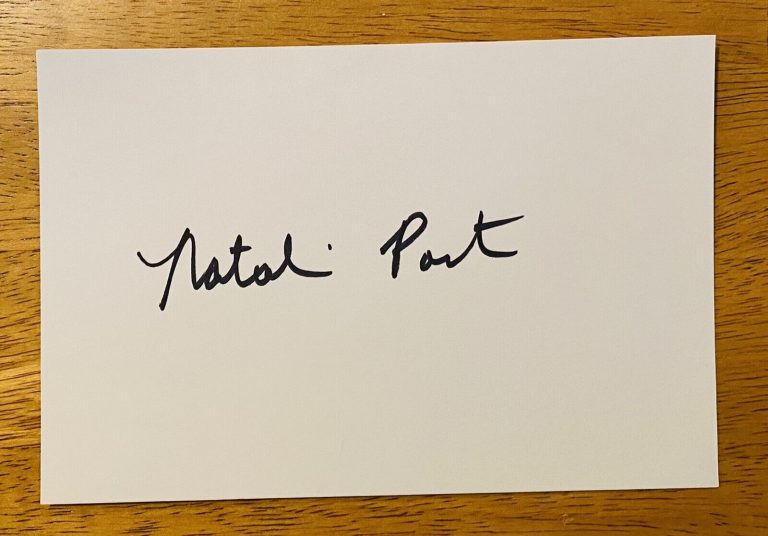 Natali Port